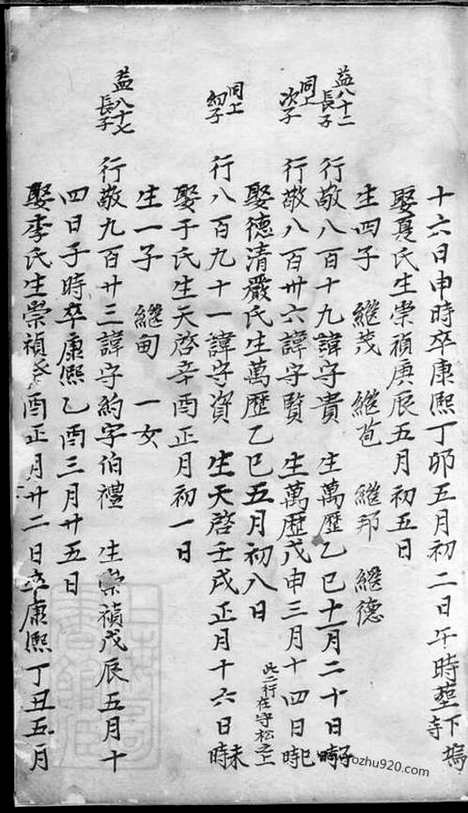 十六日申時卒康熙丁卯五月初二日午時塟下塢寺
娶夏氏生崇禎庚辰五月初五日
生四子 繼茂 繼苞 繼邦 繼德
益八十二長子 行敬八百十九諱守貴 生萬歷乙巳十一月二十日子時
同上次子 行敬八百卅六諱守賢 生萬歷戊申三月十四日巳時
娶德清嚴氏生萬歷乙巳五月初八日 此二行在守松之上
同上幼子 行八百九十一諱守資 生天啓壬戌正月十六日未時
娶于氏生天啓辛酉正月初一日
生一子 繼甸 一女
益八十七長子 行敬九百廿三諱守約字伯禮 生崇禎戊辰五月十
四日子時卒康熙乙酉三月廿五日
娶李氏生崇禎癸酉正月廿二日卒康熙丁丑五月
fozhu920.com